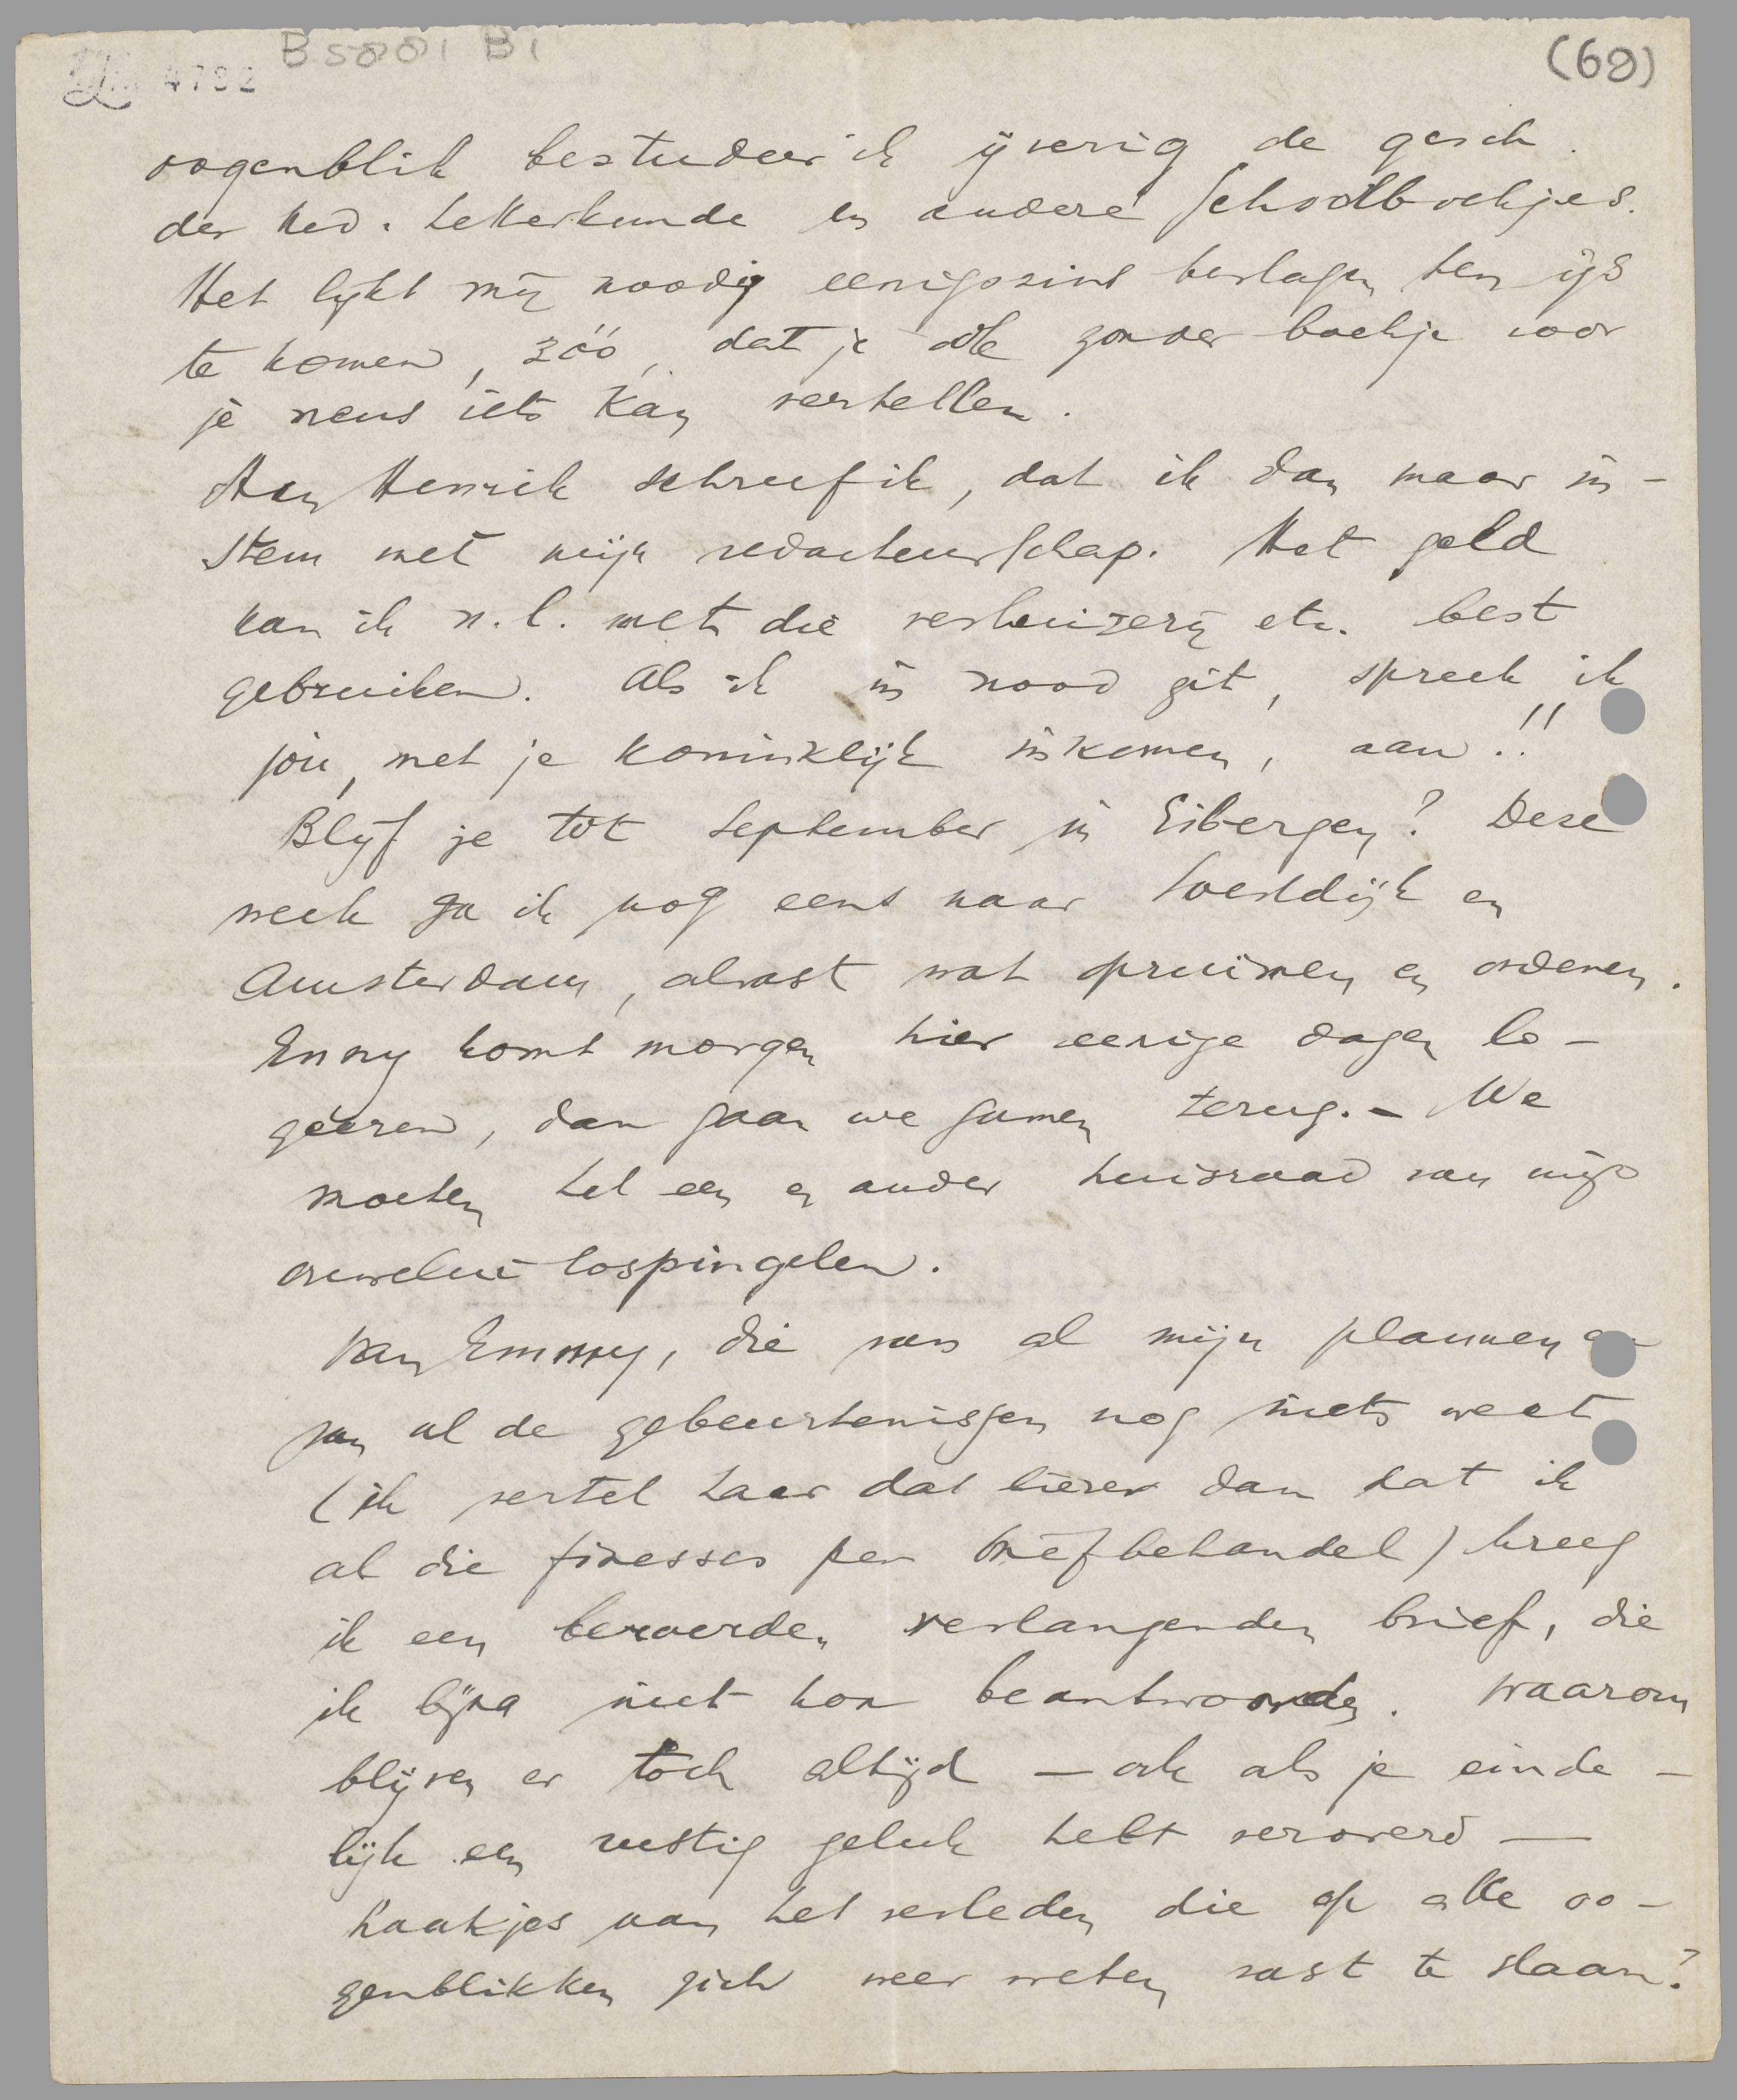 B5001 B1
4792
(60)
oogenblik bestudeer ik ijverig de gesch.
der Ned. Letterkunde en andere schoolboekjes.
Het lijkt mij noodig eenigszins beslagen ten ijs
te komen, zóó, dat je ook zonder boekje voor
je neus iets kan vertellen.
Aan Henrik schreef ik, dat ik dan maar in-
stem met mijn redacteurschap. Het geld
kan ik n.l. met die verhuizerij etc. best
gebruiken. Als ik in nood zit, spreek ik
jou, met je koninklijk inkomen, aan!!
Blijf je tot September in Eibergen? Deze
week ga ik nog eens naar Soestdijk en
Amsterdam, alvast wat opruimen en ordenen.
Enny komt morgen hier eenige dagen lo-
geeren, dan gaan we samen terug. - We
moeten het een en ander huisraad van mijn
ouwelui lospingelen.
Van Emmy, die van al mijn plannen en
van al de gebeurtenissen nog niets weet
(ik vertel haar dat liever dan dat ik
al die finesses per brief behandel) kreeg
ik een beroerden verlangenden brief, die
ik bijna niet kon beantwoorden. Waarom
blijven er toch altijd — ook als je einde-
lijk een rustig geluk hebt veroverd —
haakjes aan het verleden die op alle oo-
genblikken zich weer weten vast te slaan?